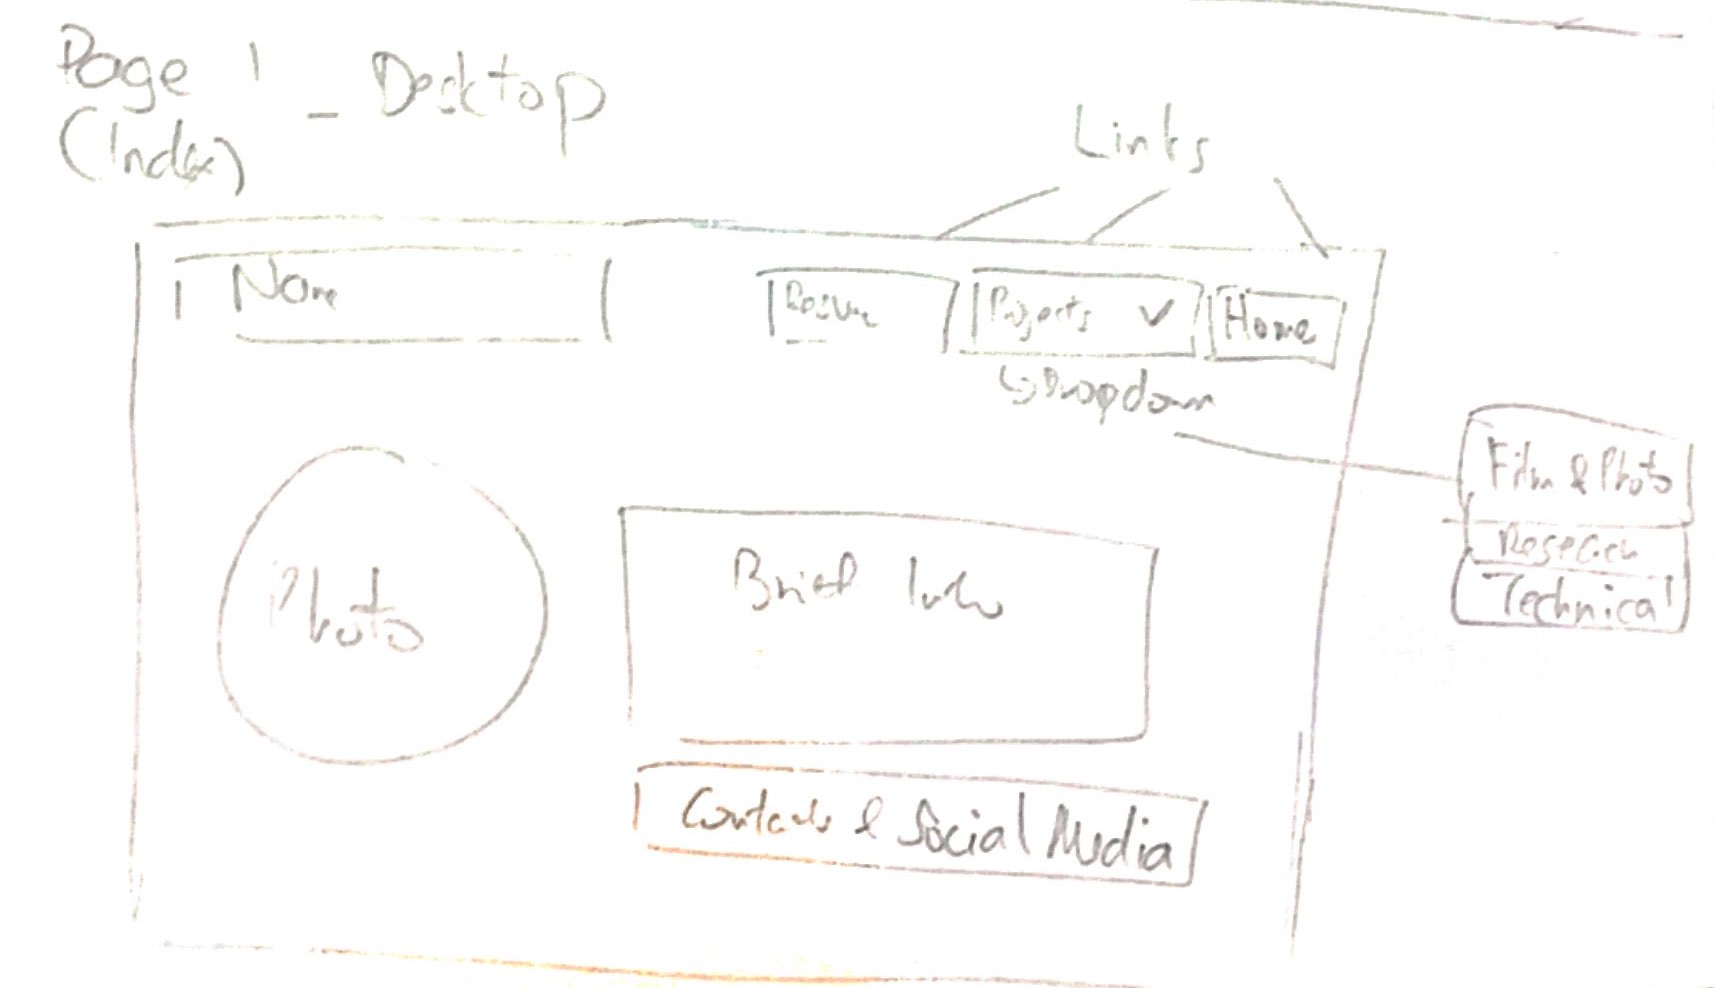 Page 1 - Desktop
(Index)
Links
Name
Resume
Projects
Home
Dropdown
Film & Photo
Research
Technical
Photo
Brief Intro
Contacts & Social Media